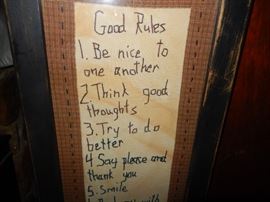 Good Rules
1. Be nice to
one another
2. Think good
thoughts
3. Try to do
better
4 Say please and
thank you
5. Smile
with